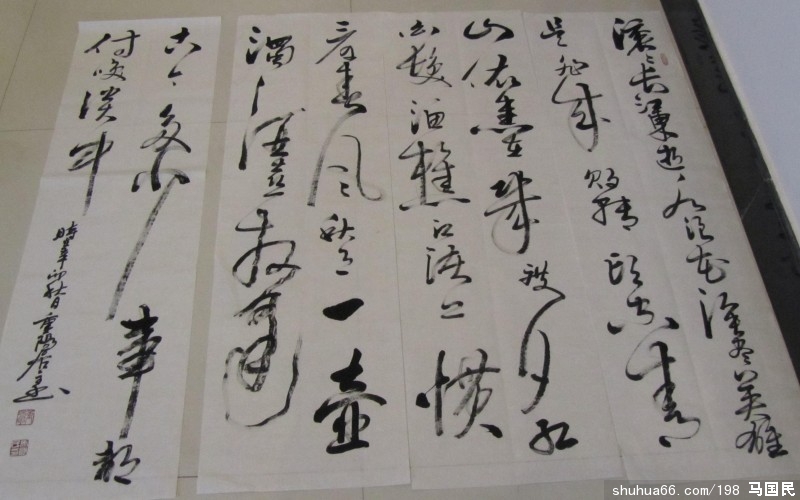 滚滚长江逝水浪花淘盡英雄
是非成敗轉頭空青
山依舊在幾度夕阳红
白发渔樵江渚上惯
看春风秋月一壶
濁酒喜逢
古今多少事都
付笑谈中
時辛卯秋日
shuhua66.com/198 马国民